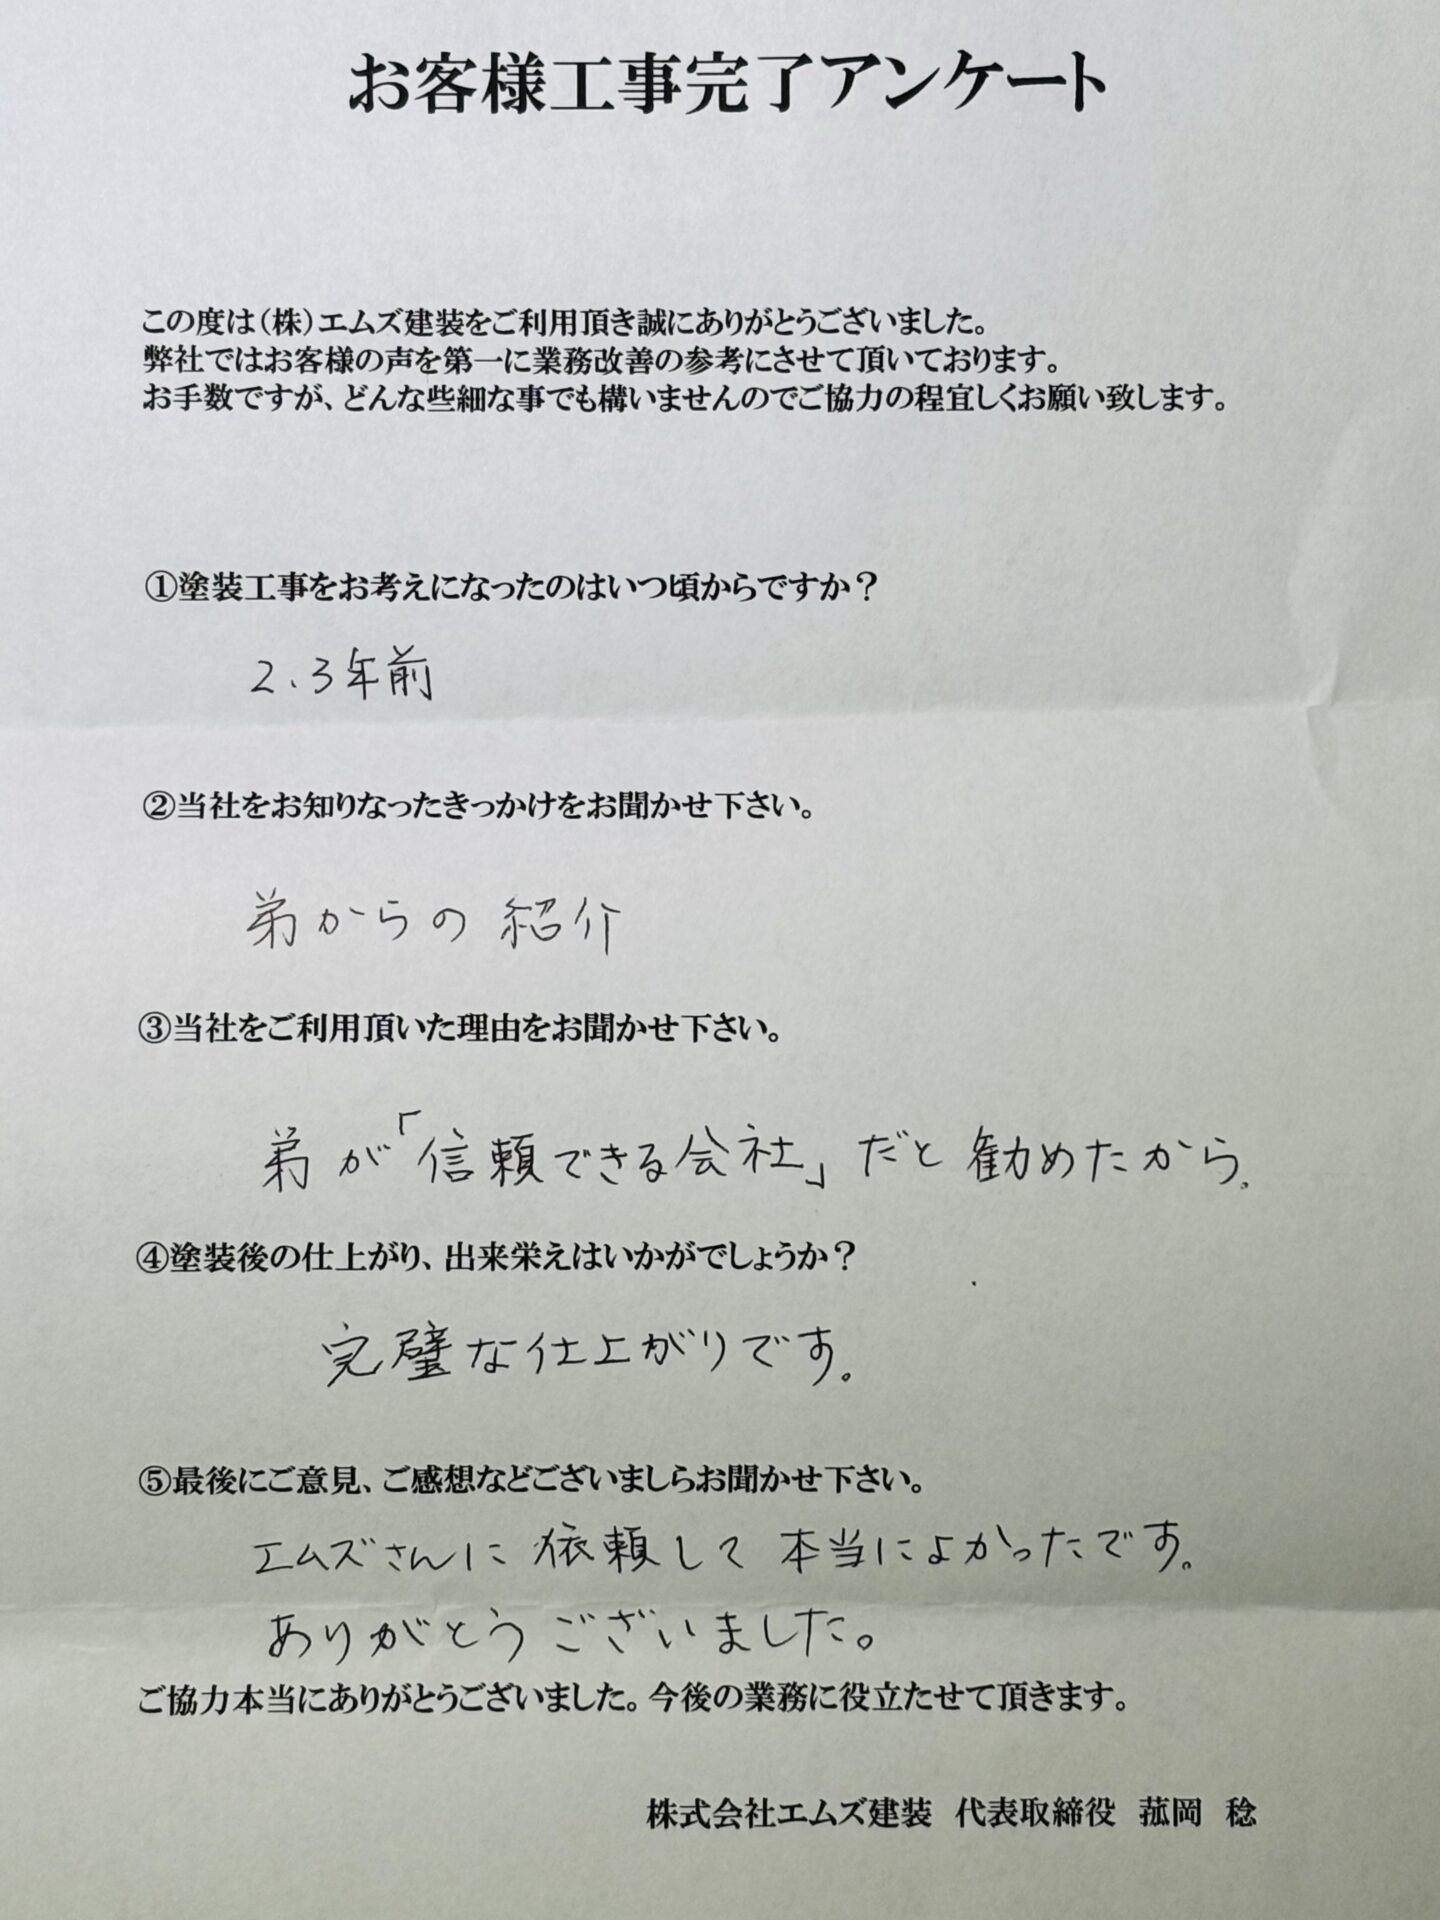 お客様工事完了アンケート
この度は（株）エムズ建装をご利用頂き誠にありがとうございました。
弊社ではお客様の声を第一に業務改善の参考にさせて頂いております。
お手数ですが、どんな些細な事でも構いませんのでご協力の程宜しくお願い致します。
①塗装工事をお考えになったのはいつ頃からですか？
2、3年前
②当社をお知りなったきっかけをお聞かせ下さい。
弟からの 紹介
③当社をご利用頂いた理由をお聞かせ下さい。
弟が「信頼できる会社」だと勧めたから。
④塗装後の仕上がり、出来栄えはいかがでしょうか？
完璧な仕上がりです。
⑤最後にご意見、ご感想などございましらお聞かせ下さい。
エムズさんに 依頼して 本当によかったです。
ありがとう ございました。
ご協力本当にありがとうございました。今後の業務に役立たせて頂きます。
株式会社エムズ建装　代表取締役　菰岡　稔